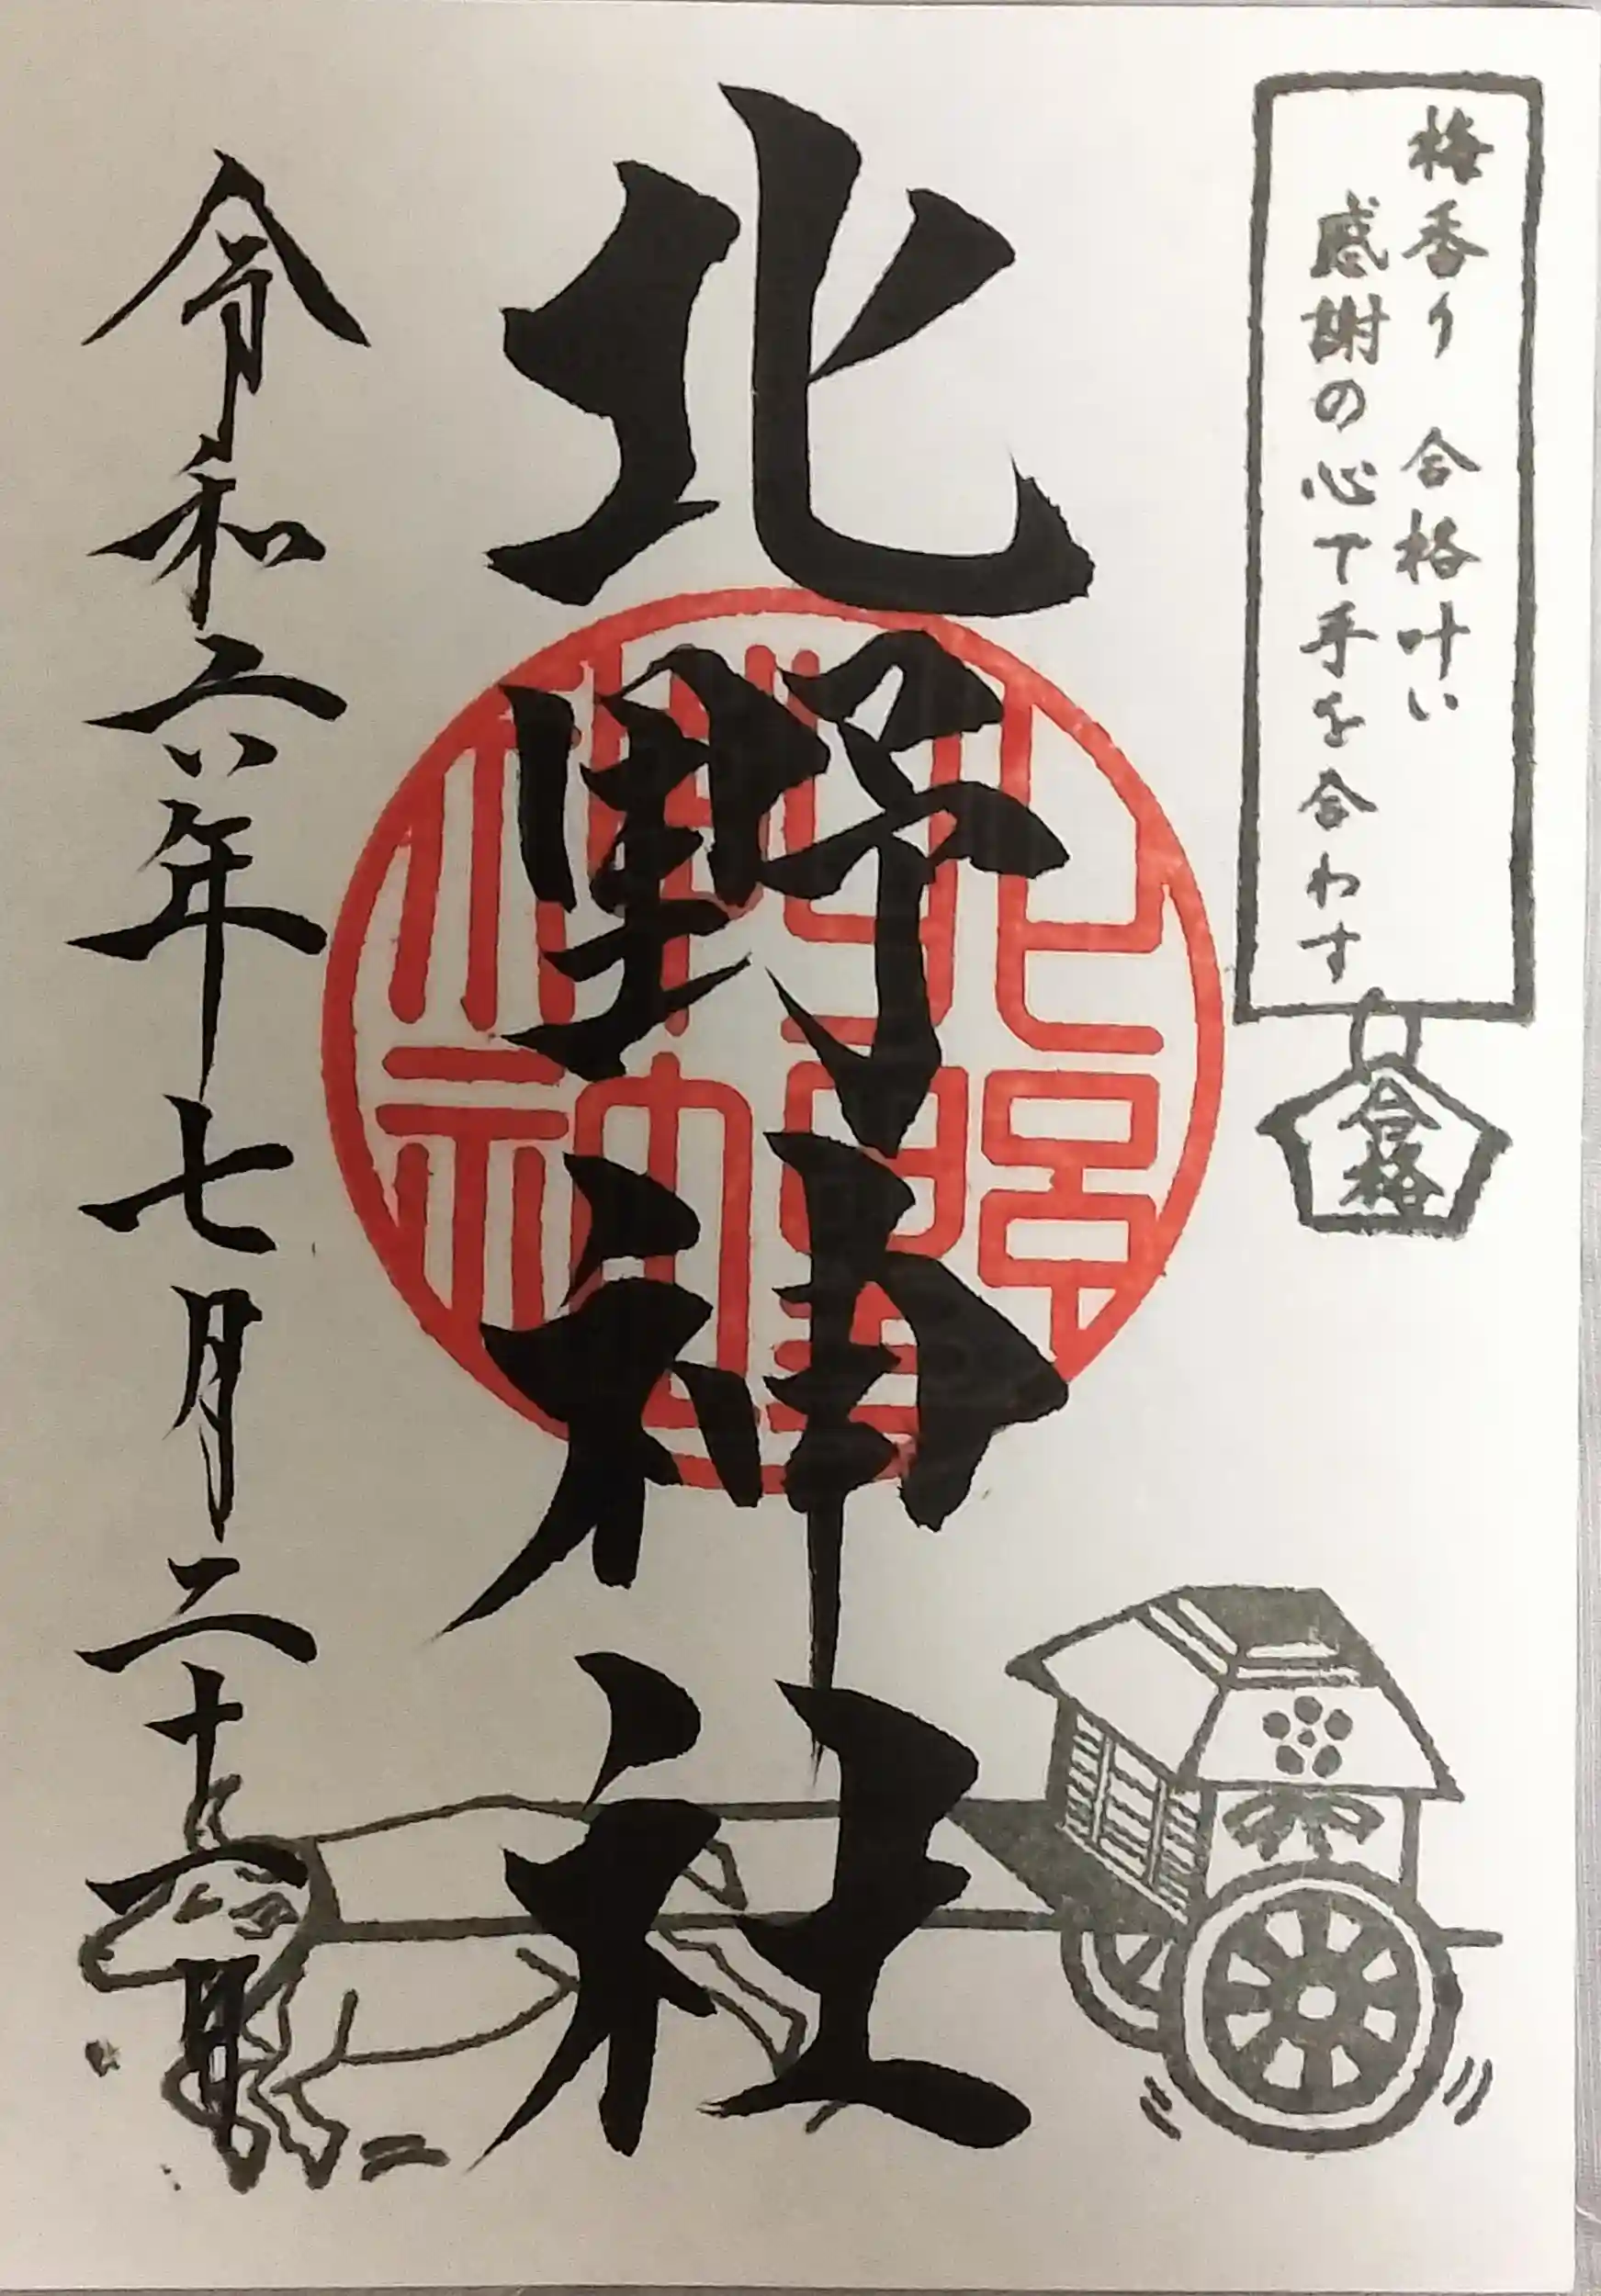 梅香り 合格叶い
感謝の心で手を合わす
合格
北野神社
北野神社
令和六年七月二十一日